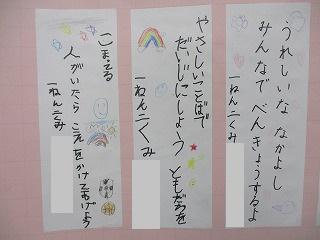 うれしいな なかよし
みんなで べんきょうするよ
一ねん二くみ
やさしいことばで
だいじにしよう ともだちを
一ねん二くみ
こまってる
人がいたら こえをかけてあげよう
一ねん二くみ